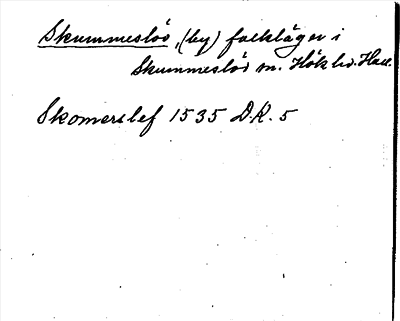 Skummeslöv, (by) facklägr i
Skummeslöv sn. Hök hd. Hall.
Skomerslef 1535 D.R. 5